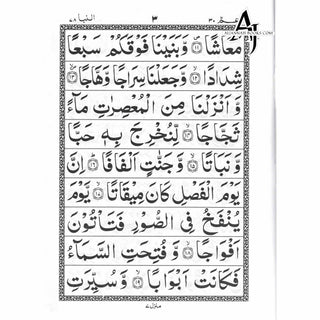 النبا ٧٨ ٣ عم ٣٠
ALJANNATBOOKS.COM
مَعَاشًا ﴿١١﴾ وَّبَنَيْنَا فَوْقَكُمْ سَبْعًا
شِدَادًا ﴿١٢﴾ وَّجَعَلْنَا سِرَاجًا وَّهَّاجًا ﴿١٣﴾
وَّاَنْزَلْنَا مِنَ الْمُعْصِرٰتِ مَآءً
ثَجَّاجًا ﴿١٤﴾ لِّنُخْرِجَ بِهٖ حَبًّا
وَّنَبَاتًا ﴿١٥﴾ وَّجَنّٰتٍ اَلْفَافًا ﴿١٦﴾ اِنَّ
يَوْمَ الْفَصْلِ كَانَ مِيْقَاتًا ﴿١٧﴾ يَّوْمَ
يُنْفَخُ فِى الصُّوْرِ فَتَاْتُوْنَ
اَفْوَاجًا ﴿١٨﴾ وَّفُتِحَتِ السَّمَآءُ
فَكَانَتْ اَبْوَابًا ﴿١٩﴾ وَّسُيِّرَتِ
منزل ٧